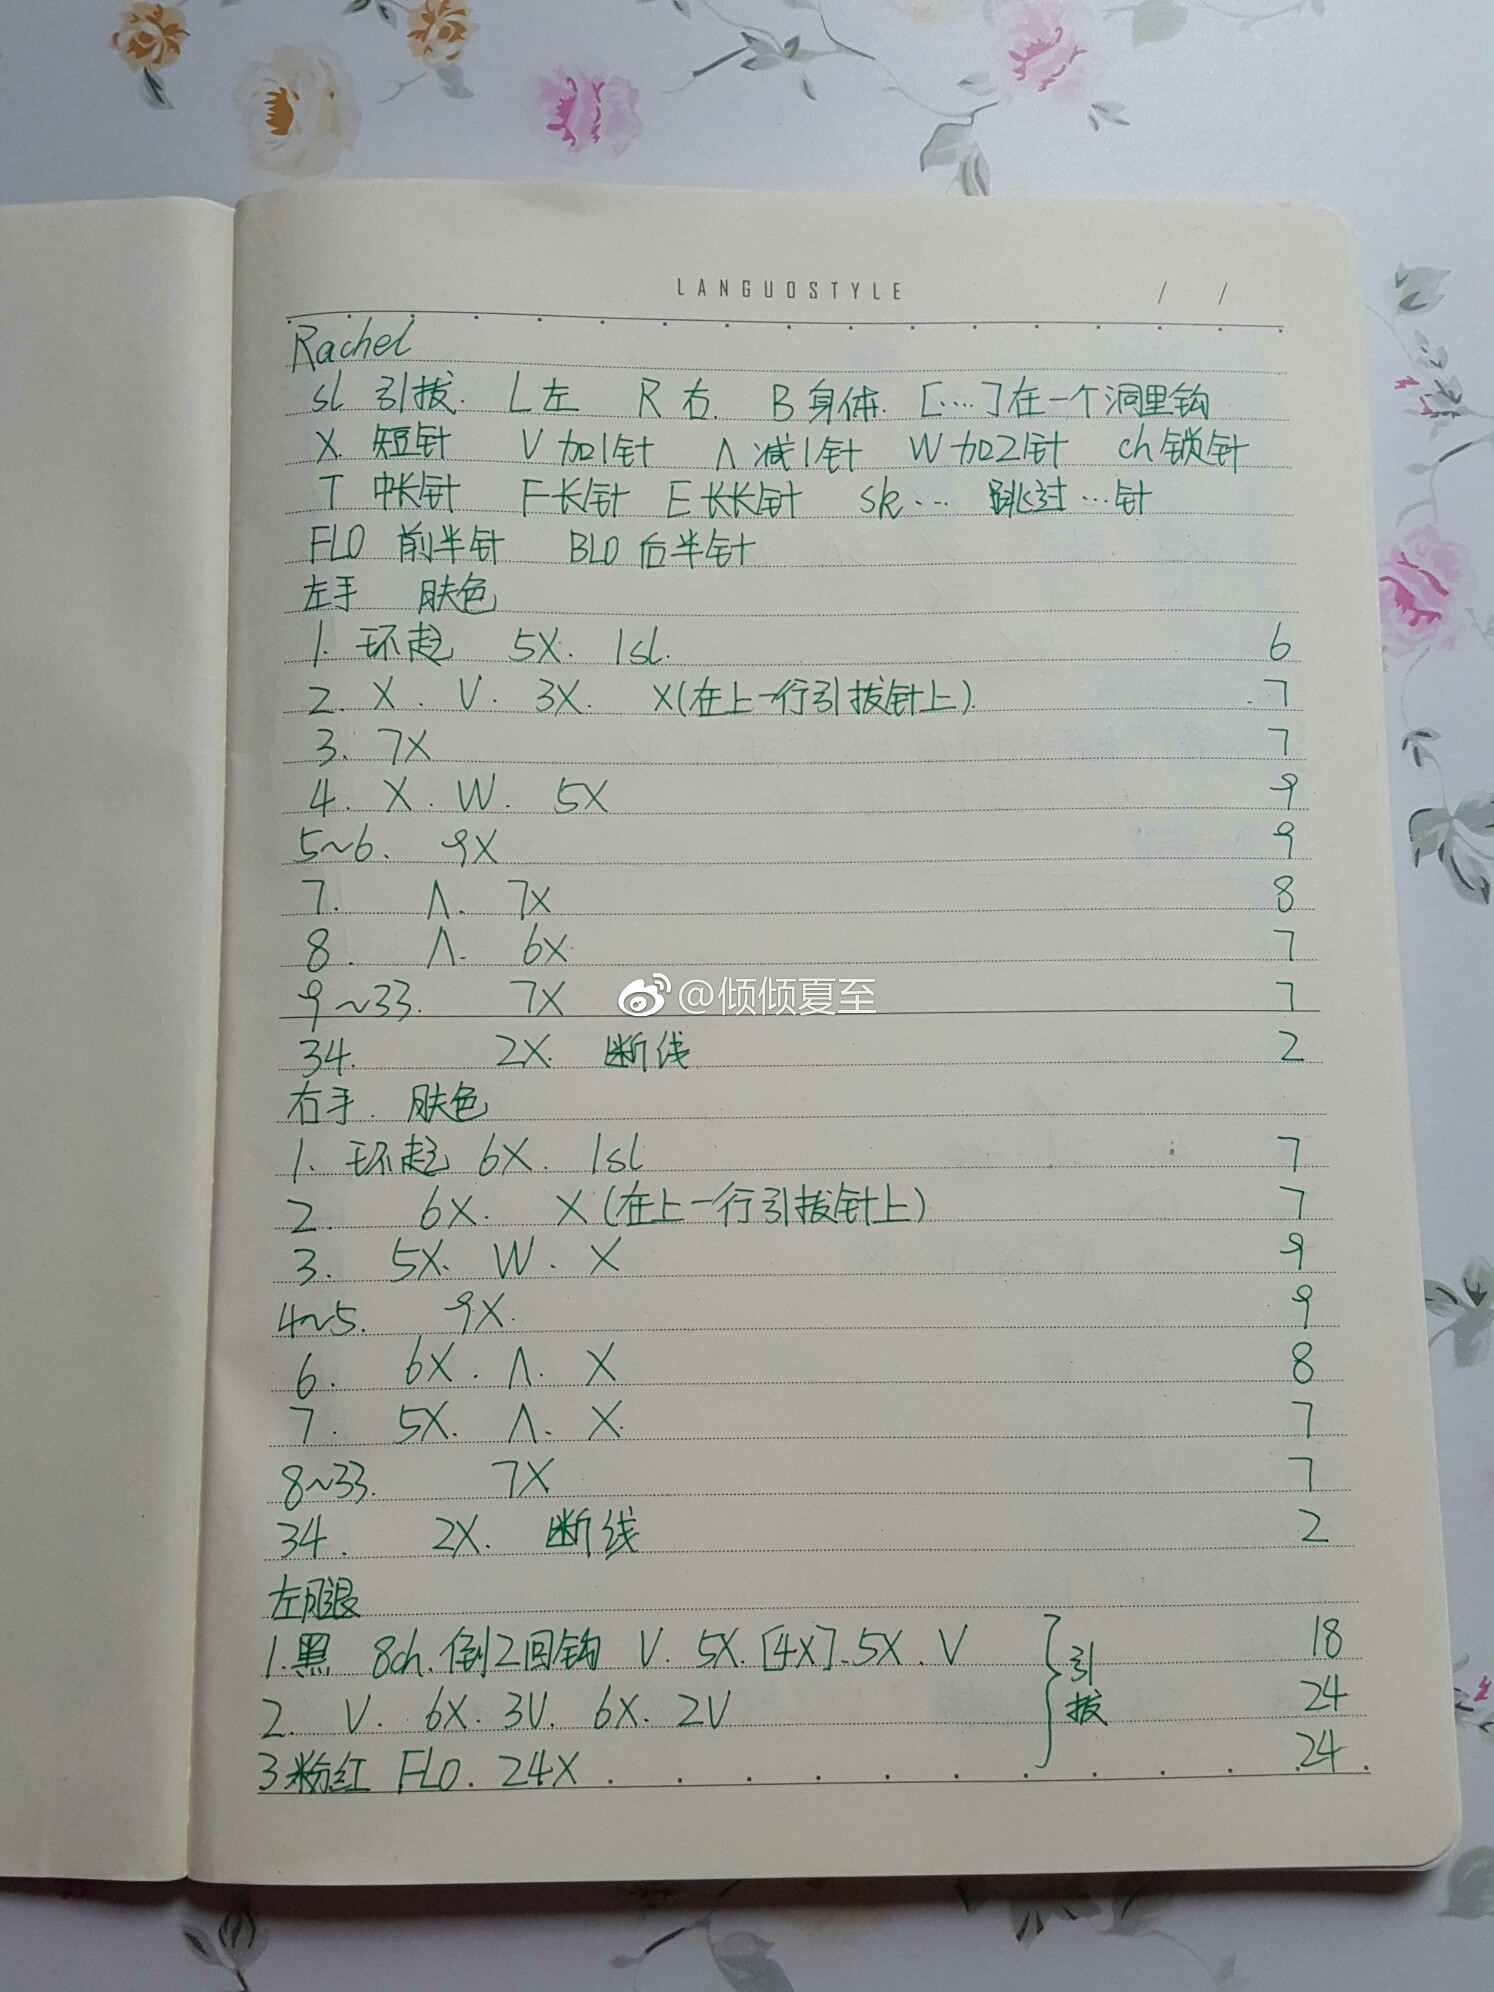 LANGUOSTYLE / /
Rachel
sl 引拔. L左 R右. B身体. [....]在一个洞里钩
X 短针 V加1针 Λ减1针 W加2针 ch锁针
T 中长针 F长针 E长长针 sk... 跳过...针
FLO 前半针 BLO后半针
左手 肤色
1. 环起 5X. 1sl. 6
2. X. V. 3X. X(在上一行引拔针上). 7
3. 7X 7
4. X. W. 5X 9
5~6. 9X 9
7. Λ. 7X 8
8. Λ. 6X 7
9~33. 7X 7
@倾倾夏至
34. 2X. 断线 2
右手. 肤色
1. 环起 6X. 1sl 7
2. 6X. X(在上一行引拔针上) 7
3. 5X. W. X 9
4~5. 9X. 9
6. 6X. Λ. X 8
7. 5X. Λ. X. 7
8~33. 7X 7
34. 2X. 断线 2
左腿
1.黑 8ch.倒2回钩 V. 5X.[4X].5X. V 18
2. V. 6X. 3V. 6X. 2V 引拔 24
3粉红 FLO. 24X 24